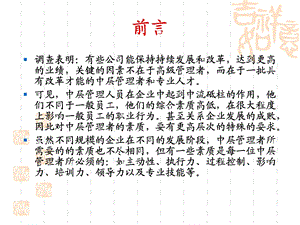 前言
调查表明：有些公司能保持持续发展和改革，达到更高
的业绩，关键的因素不在于高级管理者，而在于一批具
有改革才能的中层管理者和专业人才。
可见，中层管理人员在企业中起到中流砥柱的作用，他
们不同于一般员工，他们的综合素质高低，在很大程度
上影响一般员工的职业行为，甚至关系企业发展的成败，
因此对中层管理者的素质，要有更高层次的特殊的要求。
虽然不同规模的企业在不同的发展阶段，中层管理者所
需要的素质也不尽相同，但有一些素质是每一位中层
管理者所必须的：如主动性、执行力、过程控制、影响
力、培训力、领导力以及专业技能等。
吉祥如意